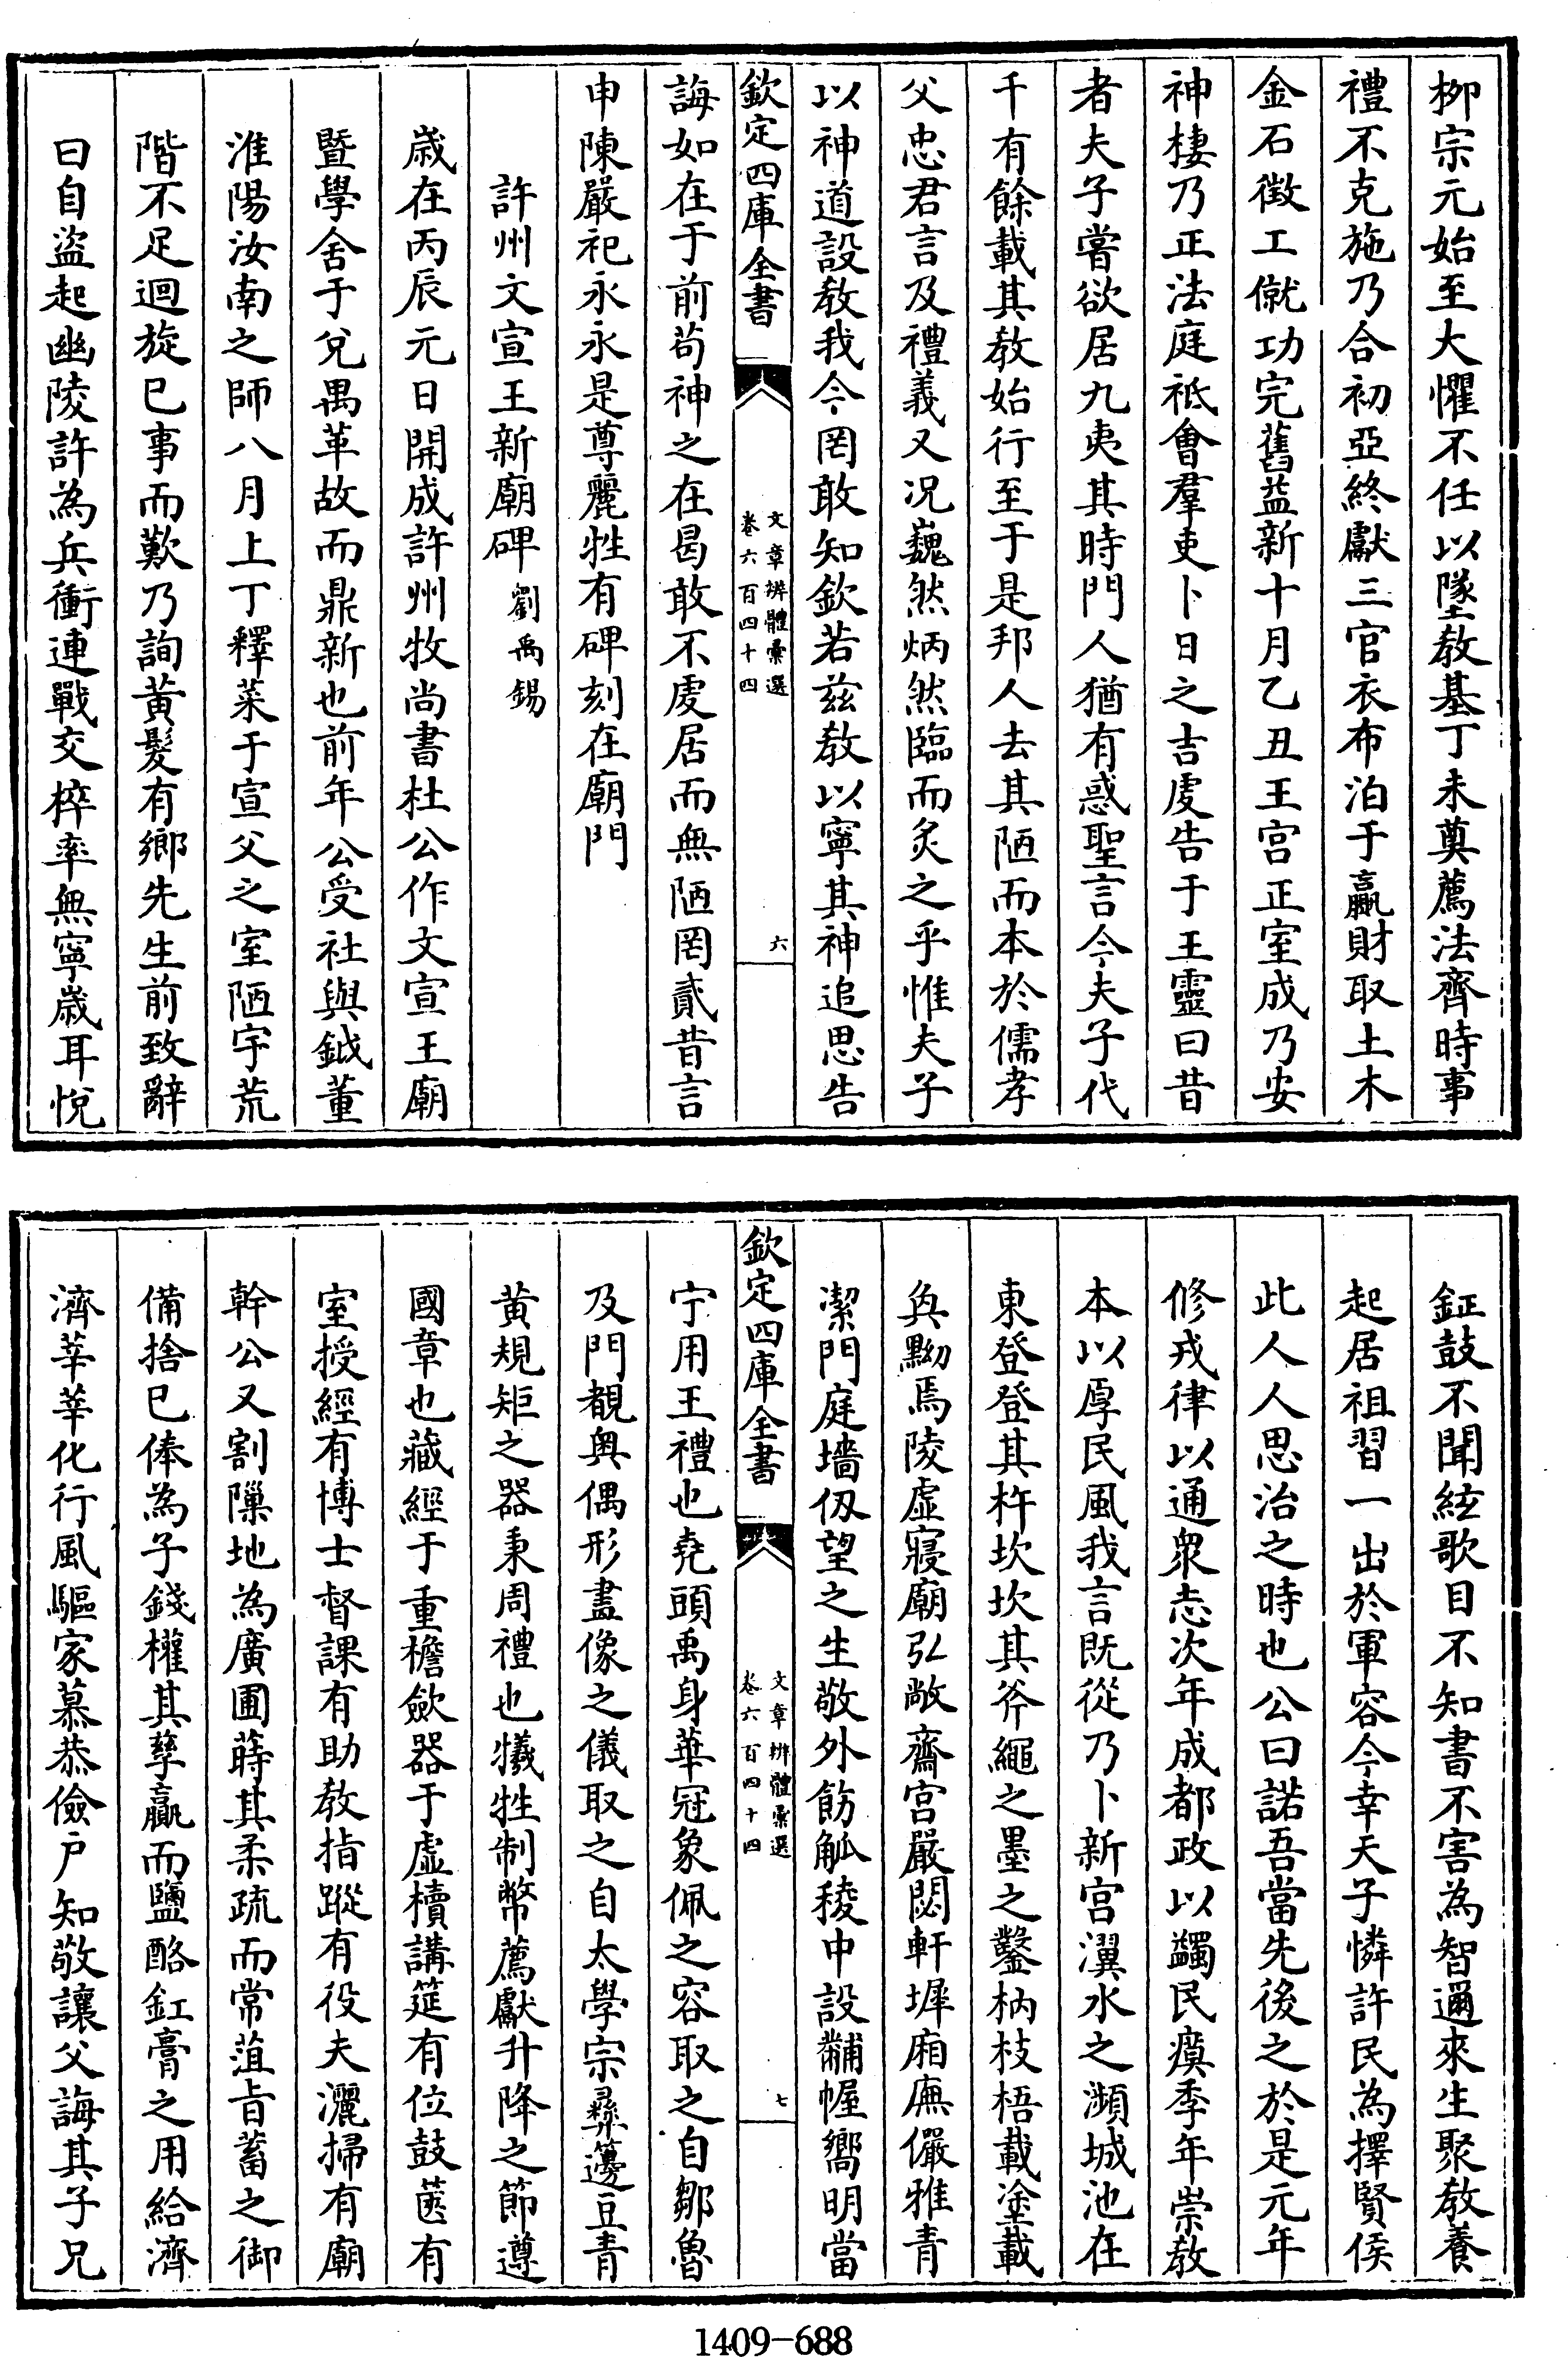 栁宗元始至大懼不任以墜敎基丁未奠薦法齊時事
禮不克施乃合初亞終獻三官衣布洎于贏財取土木
金石徵工僦功完舊益新十月乙丑王宫正室成乃安
神棲乃正法庭祗會羣吏卜日之吉虔告于王靈曰昔
者夫子嘗欲居九夷其時門人猶有惑聖言今夫子代
千有餘載其敎始行至于是邦人去其陋而本於儒孝
父忠君言及禮義又况巍然炳然臨而炙之乎惟夫子
以神道設敎我今罔敢知欽若兹敎以寧其神追思告
欽定四庫全書
文章辨體彚選
卷六百四十四
六
誨如在于前苟神之在曷敢不虔居而無陋罔貳昔言
申陳嚴祀永永是尊麗牲有碑刻在廟門
許州文宣王新廟碑 劉禹錫
歲在丙辰元日開成許州牧尚書杜公作文宣王廟
暨學舍于兊禺革故而鼎新也前年公受社與鉞董
淮陽汝南之師八月上丁釋菜于宣父之室陋宇荒
階不足迴旋已事而歎乃詢黄髮有鄉先生前致辭
曰自盜起幽陵許為兵衝連戰交捽率無寧歲耳悅
鉦鼓不聞絃歌目不知書不害為智邇來生聚敎養
起居祖習一出於軍容今幸天子憐許民為擇賢侯
此人人思治之時也公曰諾吾當先後之於是元年
修戎律以通衆志次年成都政以蠲民瘼季年崇敎
本以厚民風我言既從乃卜新宫瀷水之瀕城池在
東登登其杵坎坎其斧繩之墨之鑿枘枝梧載塗載
奐黝焉陵虚寢廟弘敞齋宫嚴閟軒墀廂廡儼雅青
潔門庭墻仭望之生敬外飭觚稜中設黼幄嚮明當
欽定四庫全書
文章辨體彚選
卷六百四十四
七
宁用王禮也堯頭禹身華冠象佩之容取之自鄒魯
及門覩奥偶形畫像之儀取之自太學宗彞籩豆青
黄規矩之器秉周禮也犧牲制幣薦獻升降之節遵
國章也藏經于重檐歛器于虚櫝講筵有位鼓篋有
室授經有博士督課有助敎指蹤有役夫灑掃有廟
幹公又割隟地為廣圃蒔其柔疏而常菹㫖蓄之御
備捨已俸為子錢權其孳贏而鹽酪釭膏之用給濟
濟莘莘化行風驅家慕恭儉户知敬讓父誨其子兄
1409-688